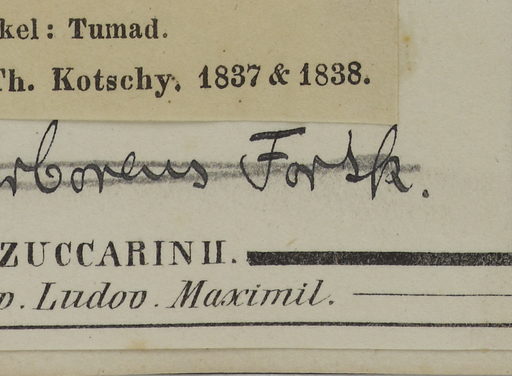 kel: Tumad.
Th. Kotschy. 1837 & 1838.
rborens Forsk.
ZUCCARINII.
p. Ludov. Maximil.